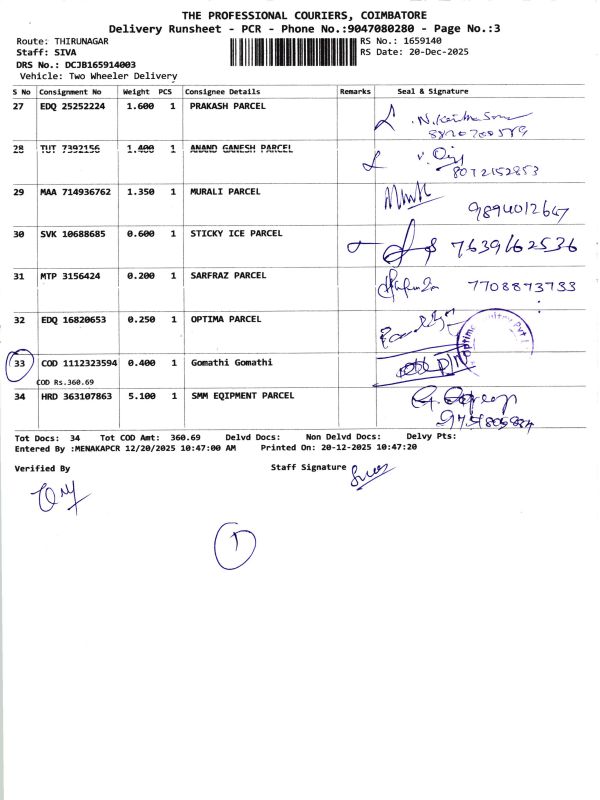 THE PROFESSIONAL COURIERS, COIMBATORE
Delivery Runsheet - PCR - Phone No.:9047080280 - Page No.:3
Route: THIRUNAGAR
RS No.: 1659140
Staff: SIVA
RS Date: 20-Dec-2025
DRS No.: DCJB165914003
Vehicle: Two Wheeler Delivery
S No Consignment No Weight PCS Consignee Details Remarks Seal & Signature
27 EDQ 25252224 1.600 1 PRAKASH PARCEL
28 TUT 7392156 1.400 1 ANAND GANESH PARCEL
8072152853
29 MAA 714936762 1.350 1 MURALI PARCEL
9894012647
30 SVK 10688685 0.600 1 STICKY ICE PARCEL
7639162536
31 MTP 3156424 0.200 1 SARFRAZ PARCEL
7708873733
32 EDQ 16820653 0.250 1 OPTIMA PARCEL
33 COD 1112323594 0.400 1 Gomathi Gomathi
COD Rs.360.69
34 HRD 363107863 5.100 1 SMM EQIPMENT PARCEL
Tot Docs: 34 Tot COD Amt: 360.69 Delvd Docs: Non Delvd Docs: Delvy Pts:
Entered By :MENAKAPCR 12/20/2025 10:47:00 AM Printed On: 20-12-2025 10:47:20
Verified By
Staff Signature
1